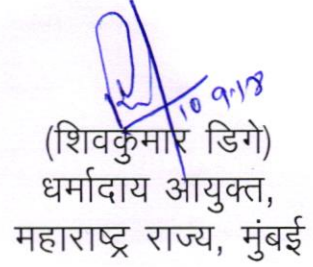 10.9.18
(शिवकुमार डिगे)
धर्मादाय आयुक्त,
महाराष्ट्र राज्य, मुंबई